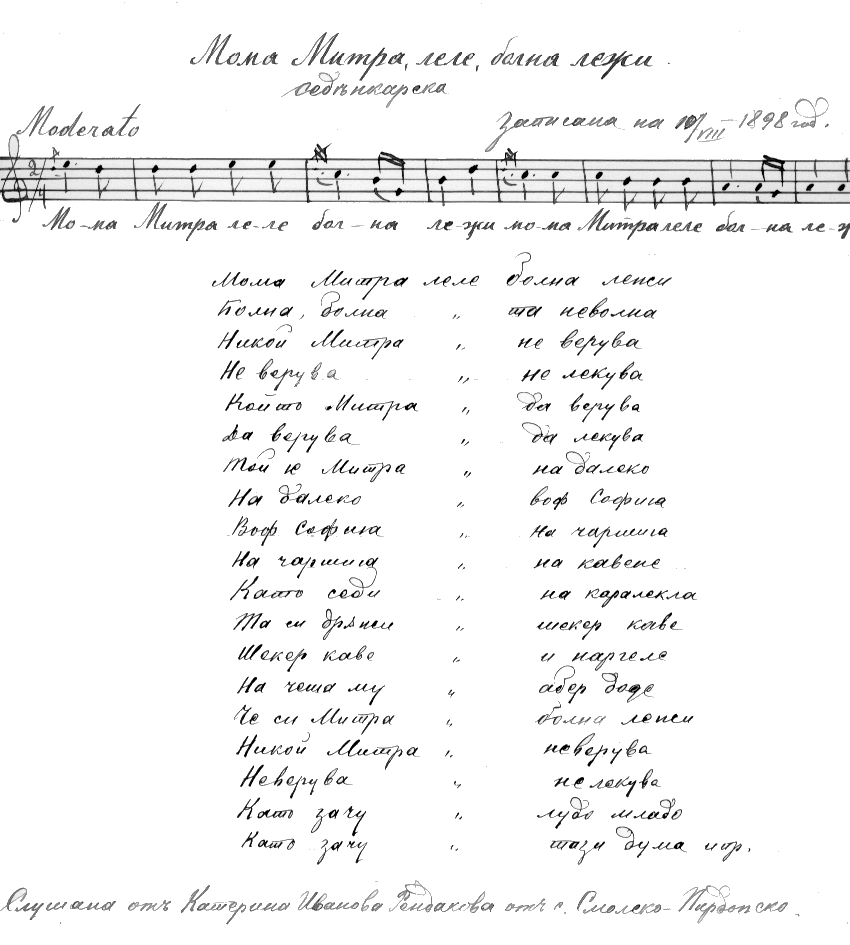 Мома Митра, леле, болна лежи.
седѣнкарска
Moderato
Записана на 10/VIII – 1898 год.
2/4
Мо-ма Митра ле-ле бол-на ле-жи мо-ма Митра леле бол-на ле-ж
Мома Митра леле болна лежи
Болна, болна „ та неволна
Никой Митра „ не верува
Не верува „ не лекува
Който Митра „ да верува
Да верува „ да лекува
Той ѥ Митра „ на далеко
На далеко „ воф София
Воф София „ на чаршия
На чаршия „ на кавене
Като седи „ на каралекла
Та си дръжи „ шекер каве
Шекер каве „ и наргеле
На чеша му „ абер доде
Че си Митра „ болна лежи
Никой Митра „ неверува
Неверува „ нелекува
Като зачу „ лудо младо
Като зачу „ тази дума и пр.
Слушана отъ Катерина Иванова Гендакова отъ с. Смолско-Пирдопско.